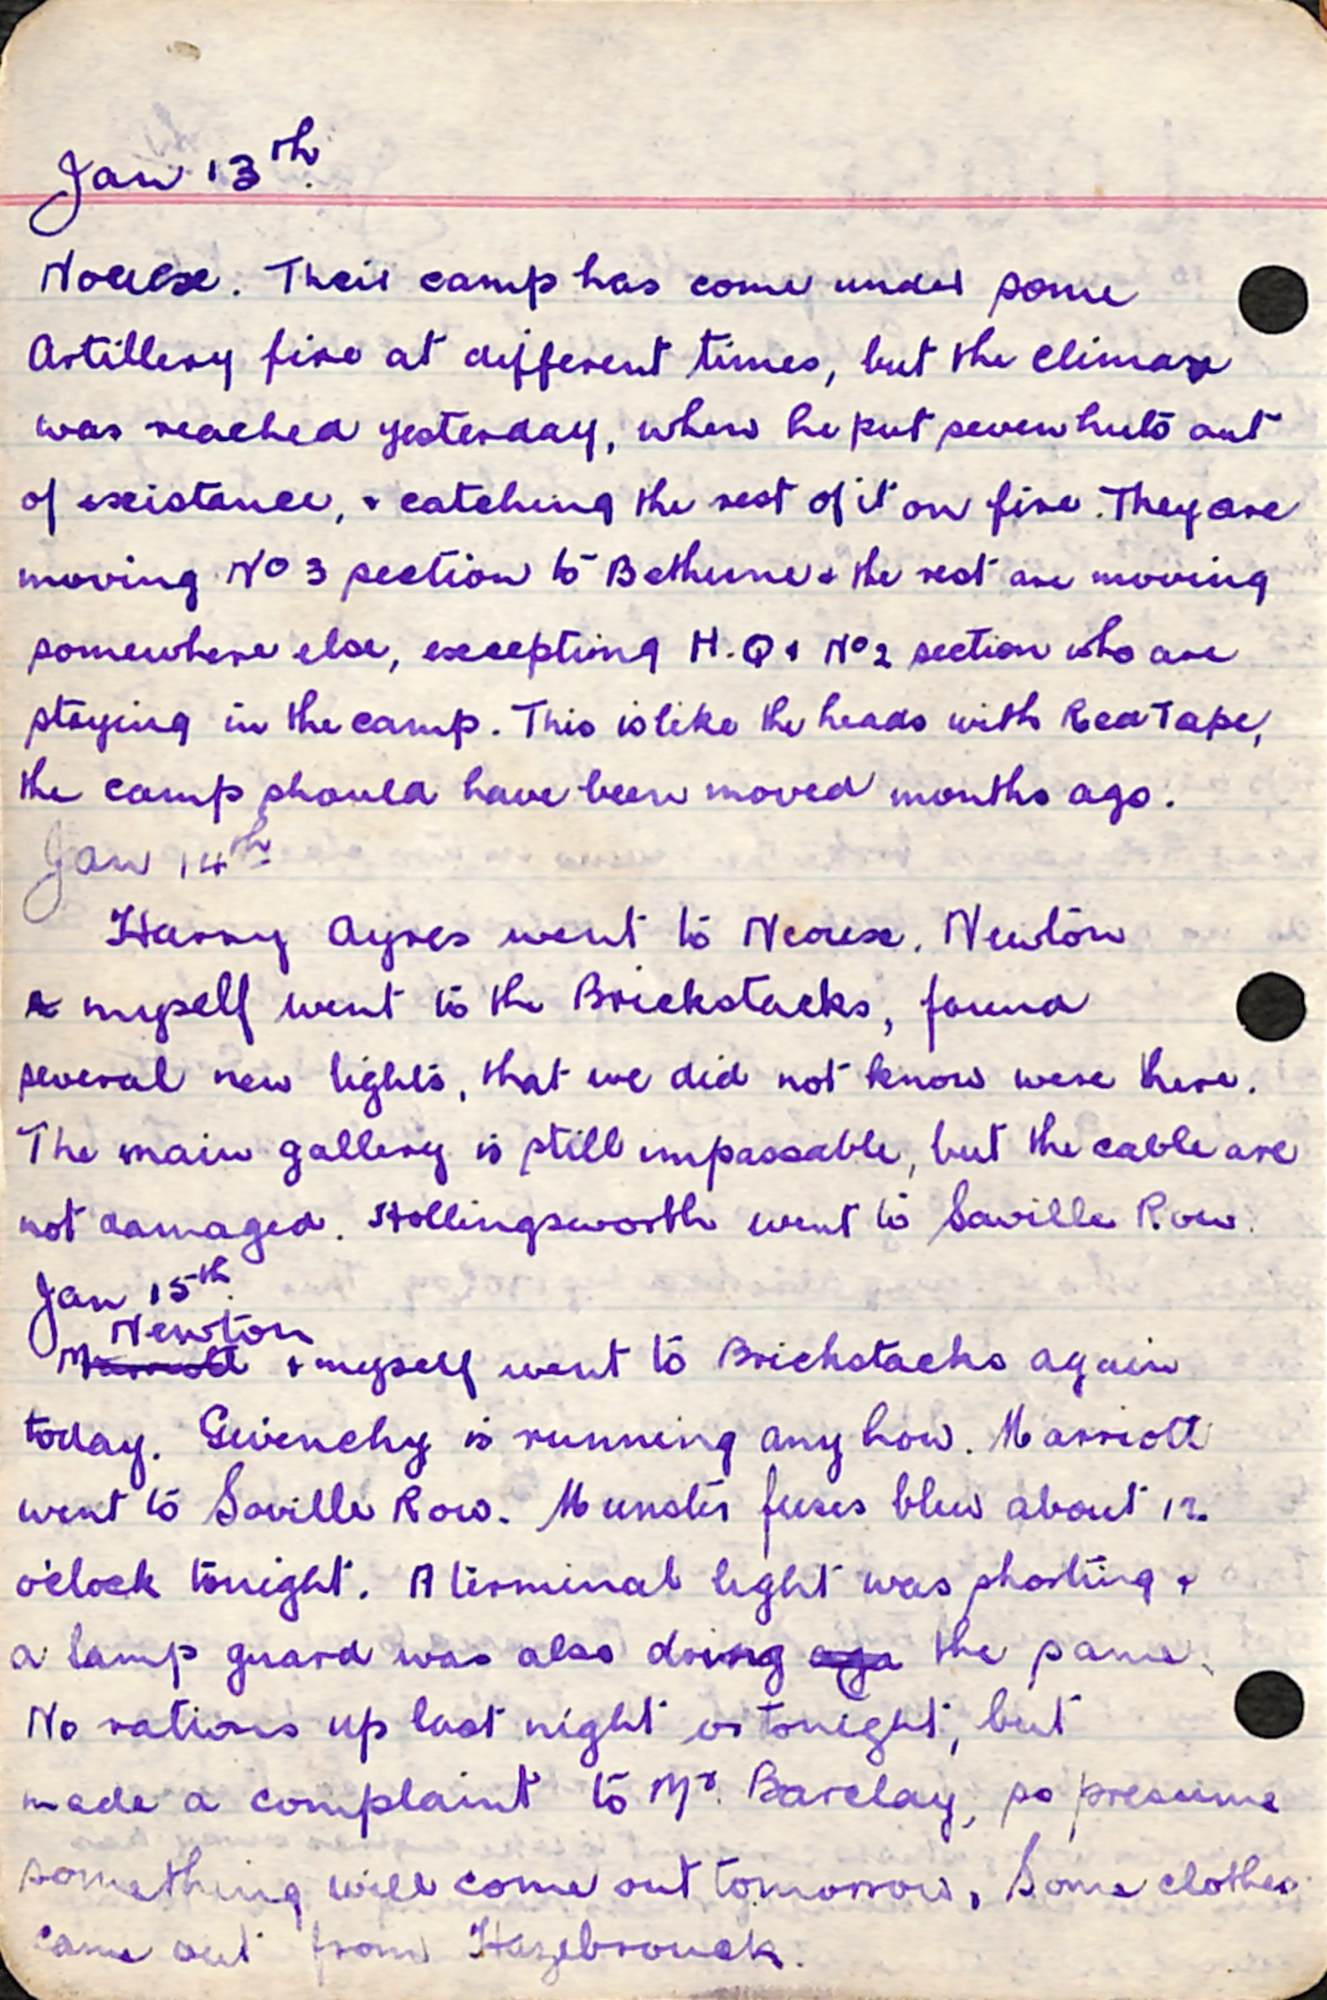 Jan 13th.
Noeuse. Their camp has come under some
Artillery fire at different times, but the climax
was reached yesterday, when he put seven huts out
of existance, & catching the rest of it on fire. They are
moving No 3 section to Bethune & the rest are moving
somewhere else, excepting H.Q & No 2 section who are
staying in the camp. This is like the heads with Red Tape,
the camp should have been moved months ago.
Jan 14th
Harry Ayres went to Neouse. Newton
& myself went to the Brickstacks, found
several new lights, that we did not know were here.
The main gallery is still impassable, but the cable are
not damaged. Hollingsworth went to Saville Row.
Jan 15th.
Newton
Marriott & myself went to Brickstacks again
today. Givenchy is running any how. Marriott
went to Saville Row. Munster fuses blew about 12.
o'clock tonight. A terminal light was shorting &
a lamp guard was also doing aga the same.
No rations up last night or tonight, but
made a complaint to Mr. Barclay, so presume
something will come out tomorrow, Some clothes
came out from Hazebrouck.